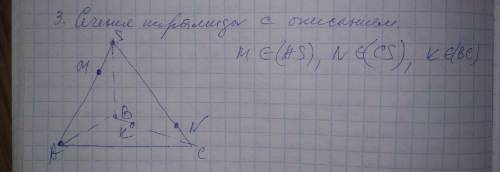 3. Сечения пирамиды с описанием.
M ∈ (AS), N ∈ (CS), K ∈ (BC)
S
M
B
K
N
A
C